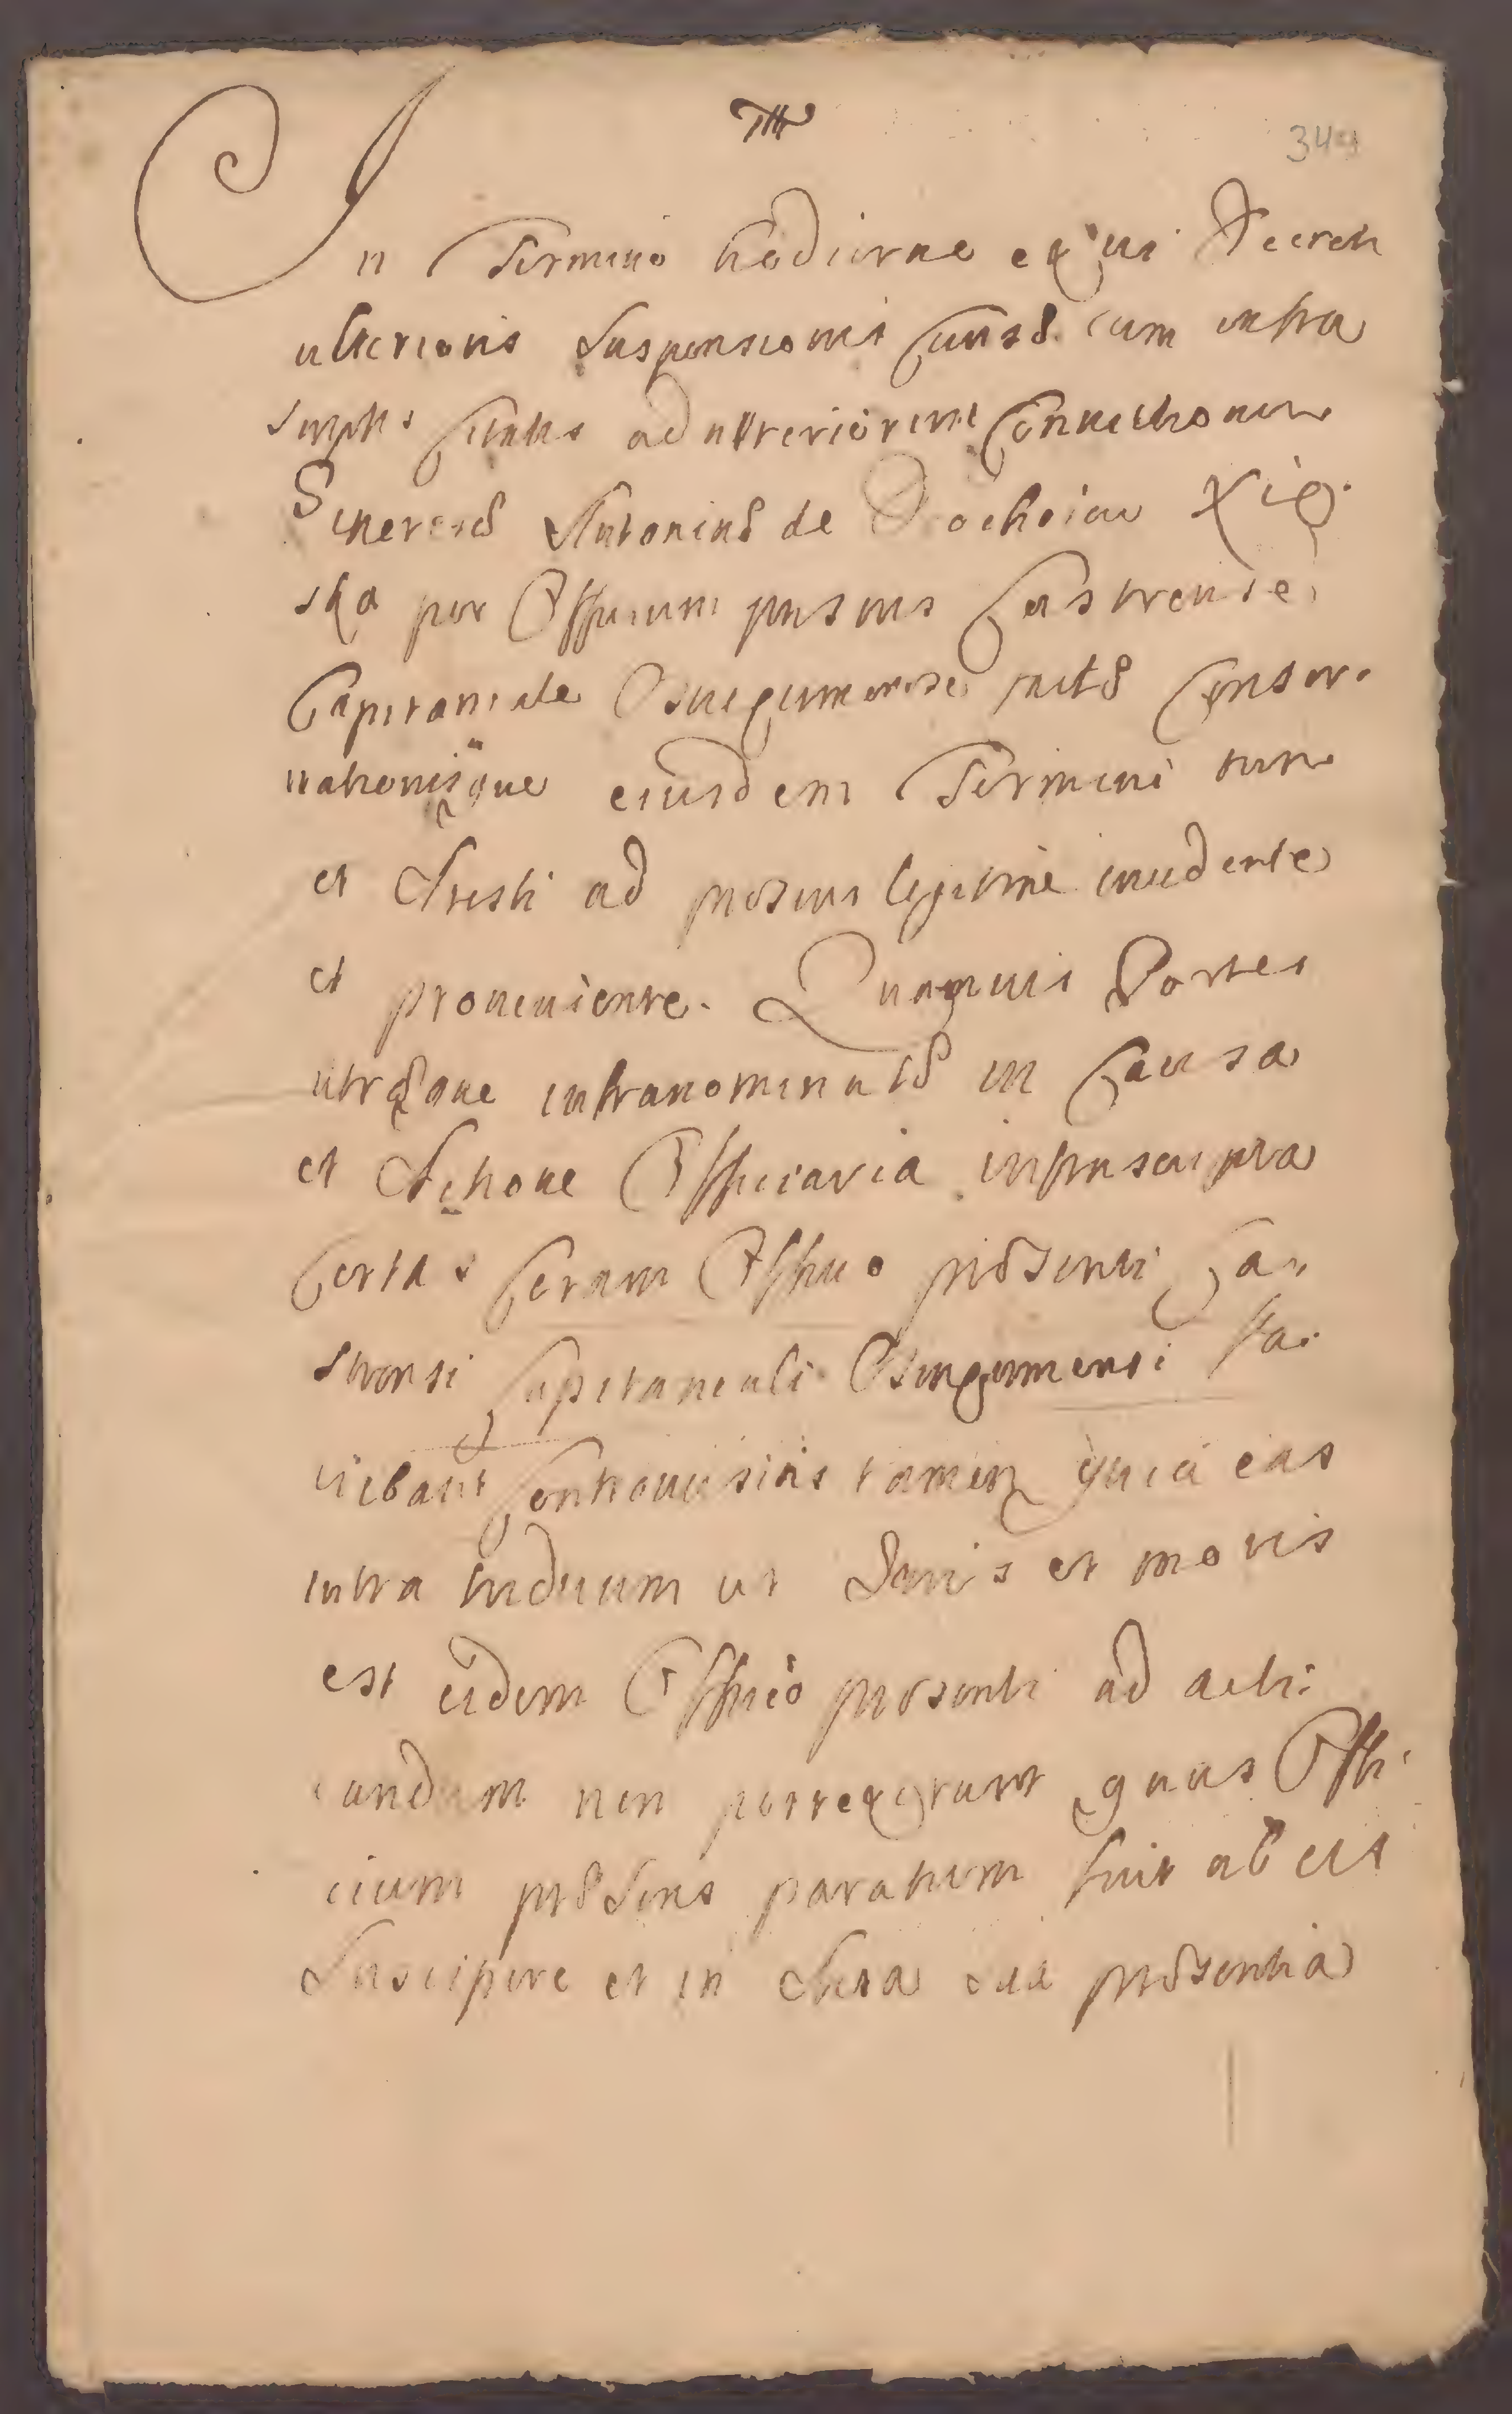 349
In Termino hodierno ex vi Decreti
ulterioris Suspensionis Causæ cum infra
Scriptis Citatis ad ulteriorem Convictionem
Generosus Antonius de Xią
ska per Officium præsens Castrense
Capitaneale Osviecimense factæ Conser
vationisque eiusdem Termini tum
et Aresti ad præsens legitime incidente
et proveniente. Quamvis Partes
utræque infranominatæ in Causa
et Actione Officiaria infrascripta
Certas Coram Officio præsenti Ca
strensi Capitaneali Osviecimensi fa
ciebant Controversias tamen quia eas
intra triduum ut Juris et moris
est eidem Officio præsenti ad acti
candum non porrexerunt quas Offi
cium præsens paratum fuit ab eis
Suscipere et in Acta sua præsentia